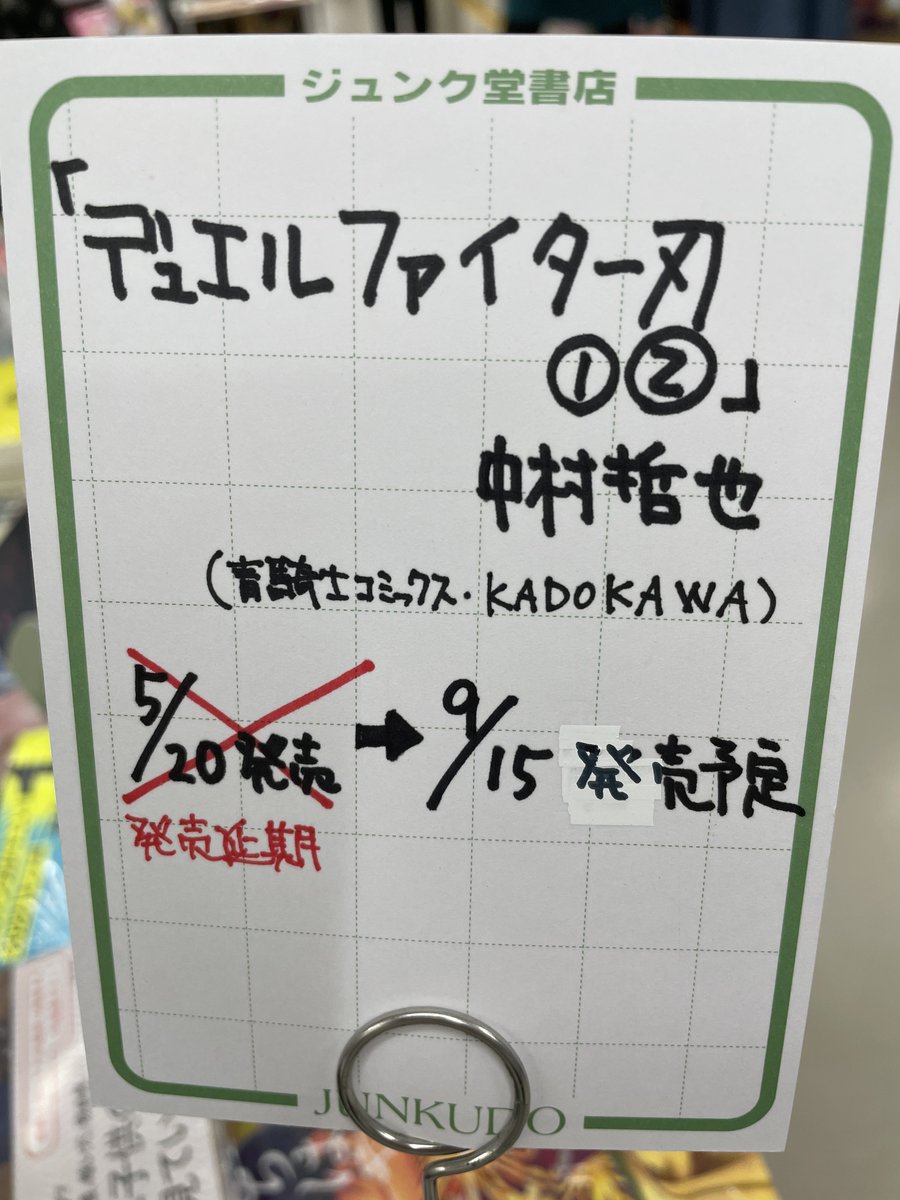 ジュンク堂書店
「デュエルファイター刃
①②」
中村哲也
(青騎士コミックス・KADOKAWA)
5/20発売 ➡ 9/15 発売予定
発売延期
JUNKUDO